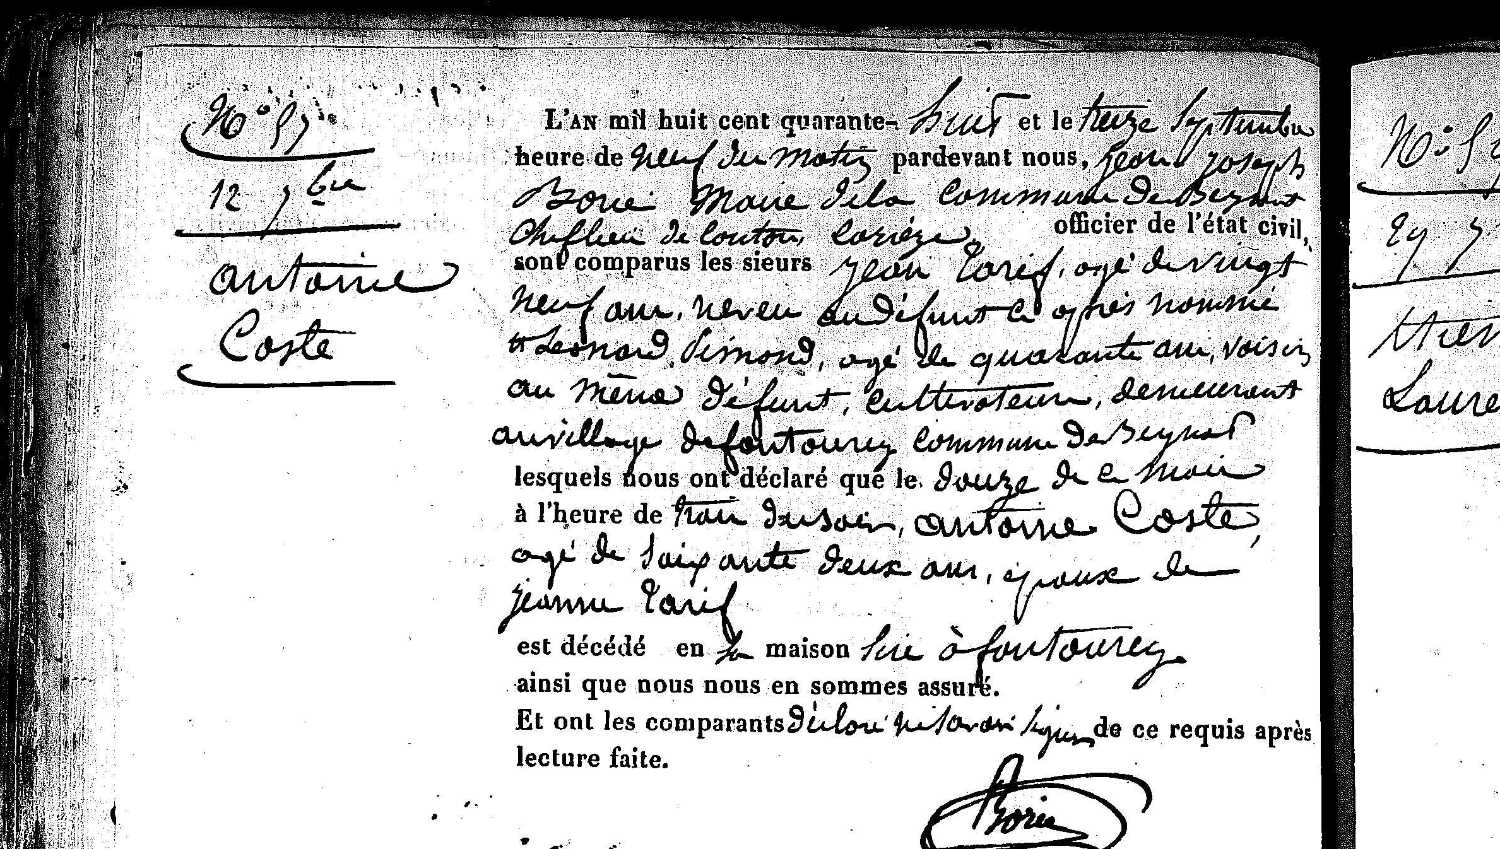 N.° 57
12 7bre
antoine
Coste
L'AN mil huit cent quarante-huit et le treize Septembre
heure de neuf du matin pardevant nous, jean joseph
Borie Maire dela Commune de Beynat
Cheflieu de Canton, Corrèze, officier de l'état civil,
sont comparus les sieurs jean Tarif, agé de vingt
neuf ans, neveu au défunt ci après nommé
et Leonard Simond, agé de quarante ans, voisin
au même défunt, cultivateurs, demeurant
au village de fontourcy Commune de Beynat
lesquels nous ont déclaré que le douze de ce mois
à l'heure de trois du soir, antoine Coste,
agé de Soixante deux ans, époux de
jeanne Tarif
est décédé en sa maison Sise à fontourcy.
ainsi que nous nous en sommes assuré.
Et ont les comparants déclaré ne savoir signer de ce requis après
lecture faite.
Borie
N.° 5
29 7
Laure